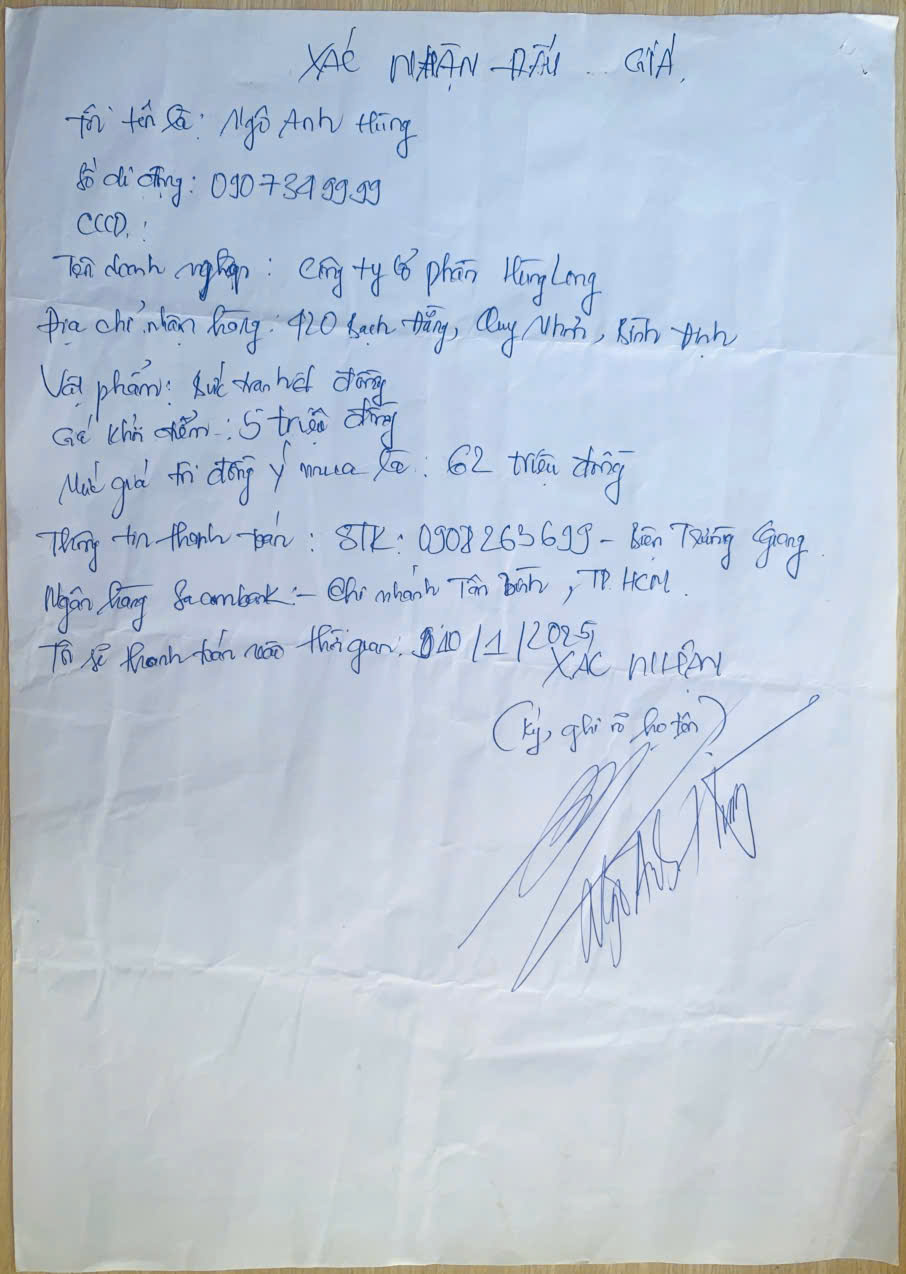 XÁC NHẬN ĐẤU GIÁ.
Tôi tên là: Ngô Anh Hùng
Số di động: 0907349999
CCCD :
Tên doanh nghiệp : Công ty Cổ phần Hùng Long
Địa chỉ nhận hàng: 420 Bạch Đằng, Quy Nhơn, Bình Định
Vật phẩm: Bức tranh đồng
Giá khởi điểm : 5 triệu đồng
Mức giá tôi đồng ý mua là : 62 triệu đồng
Thông tin thanh toán : STK: 0908263699 - Trường Giang.
Ngân hàng Sacombank:- Chi nhánh Tân Bình, TP. HCM.
Tôi sẽ thanh toán vào thời gian: 10/1/2025
XÁC NHẬN
(Ký, ghi rõ họ tên)
Ngô Anh Hùng